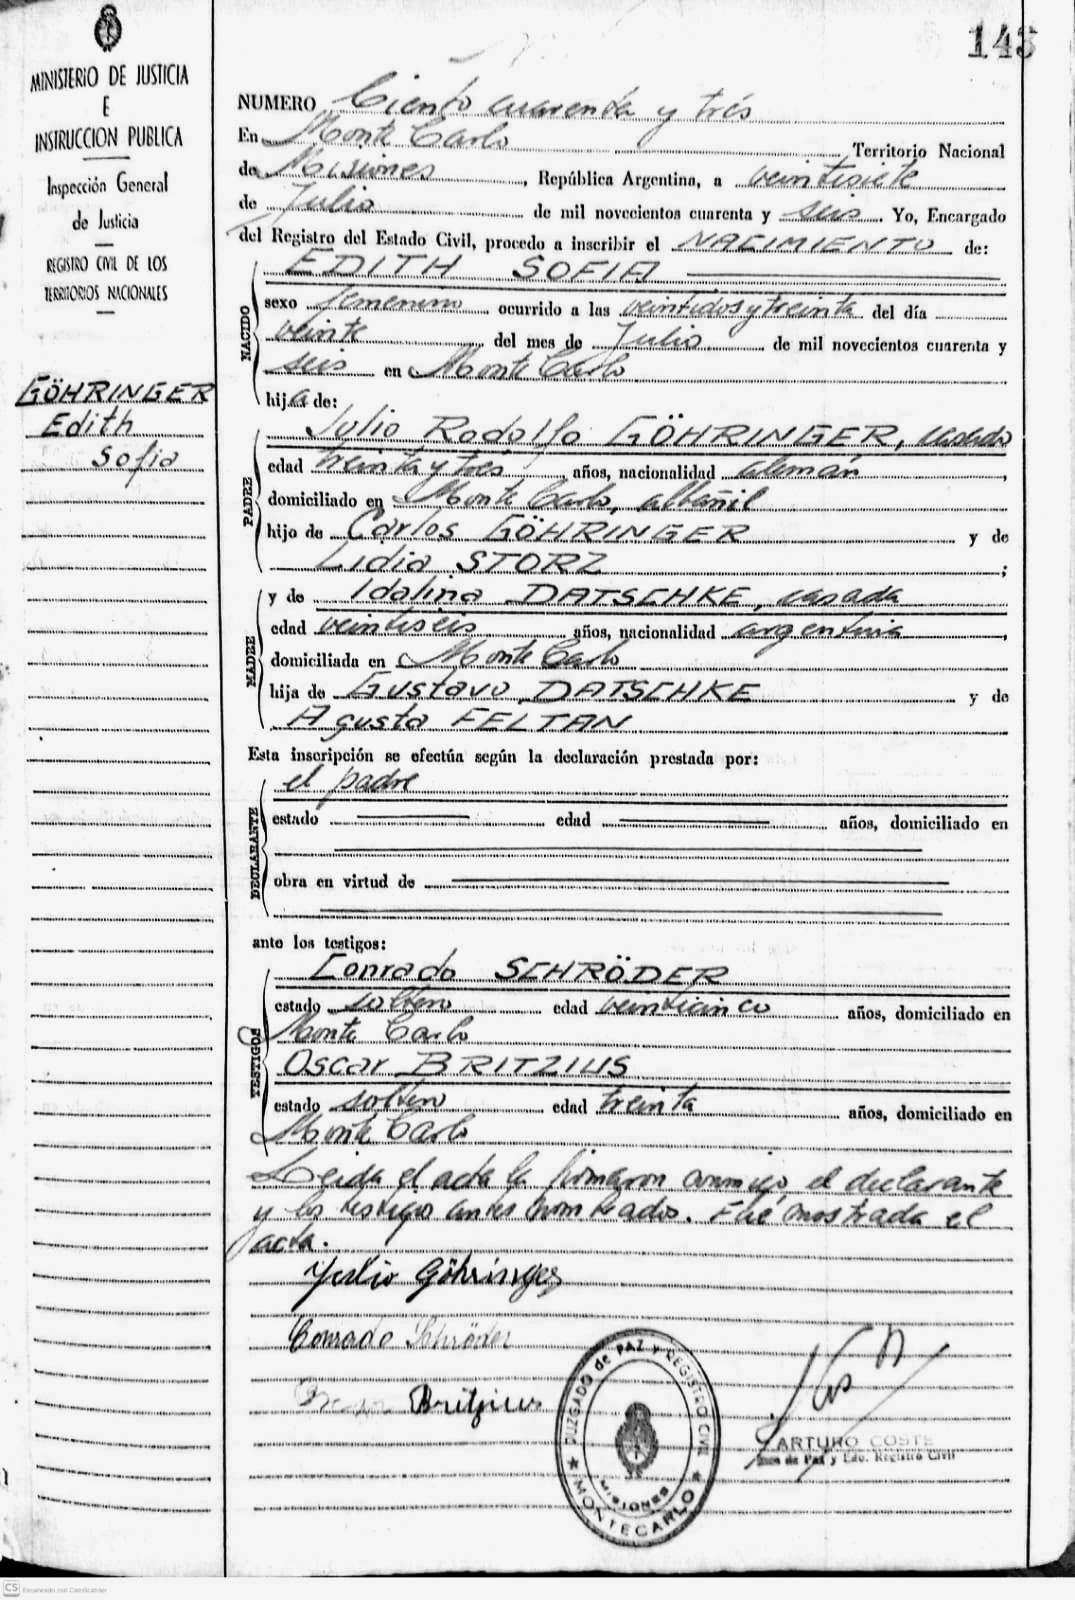 143
MINISTERIO DE JUSTICIA
E
INSTRUCCION PUBLICA
Inspección General
de Justicia
REGISTRO CIVIL DE LOS
TERRITORIOS NACIONALES
GÖHRINGER
Edith
Sofia
NUMERO Ciento cuarenta y trés
En Monte Carlo Territorio Nacional
de Misiones, República Argentina, a veintisiete
de Julio de mil novecientos cuarenta y seis. Yo, Encargado
del Registro del Estado Civil, procedo a inscribir el NACIMIENTO de:
NACIDO
EDITH SOFIA
sexo femenino ocurrido a las veintidos y treinta del día
veinte del mes de Julio de mil novecientos cuarenta y
seis en Monte Carlo
hija de:
PADRE
Julio Rodolfo GÖHRINGER, casado
edad treinta y tres años, nacionalidad alemán,
domiciliado en Monte Carlo, albañil
hijo de Carlos GÖHRINGER y de
Lidia STORZ ;
MADRE
y de Idalina DATSCHKE, casada
edad veintiseis años, nacionalidad argentina,
domiciliada en Monte Carlo
hija de Gustavo DATSCHKE y de
Agusta FELTAN
Esta inscripción se efectúa según la declaración prestada por:
DECLARANTE
el padre
estado edad años, domiciliado en
obra en virtud de
ante los testigos:
TESTIGOS
Conrado SCHRÖDER
estado soltero edad veinticinco años, domiciliado en
Monte Carlo
Oscar BRITZIUS
estado soltero edad treinta años, domiciliado en
Monte Carlo
Leida el acta la firmaron conmigo, el declarante
y los testigos antes nombrados. Fué mostrada el
acta.
Julio Göhringer
Conrado Schröder
Britzius
JUZGADO de PAZ Y REGISTRO CIVIL
MISIONES
MONTECARLO
ARTURO COSTE
Juez de Paz y Edo. Registro Civil
CS Escaneado con CamScanner